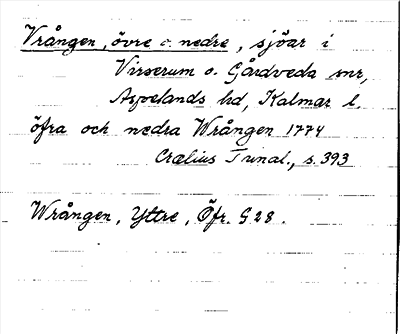 Vrången, övre o. nedre, sjöar i
Virserum o. Gårdveda snr,
Aspelands hd, Kalmar l.
öfra och nedra Wrången 1774
Crælius Tunal., s. 393
Wrången, Yttre, Öfr. G 28.